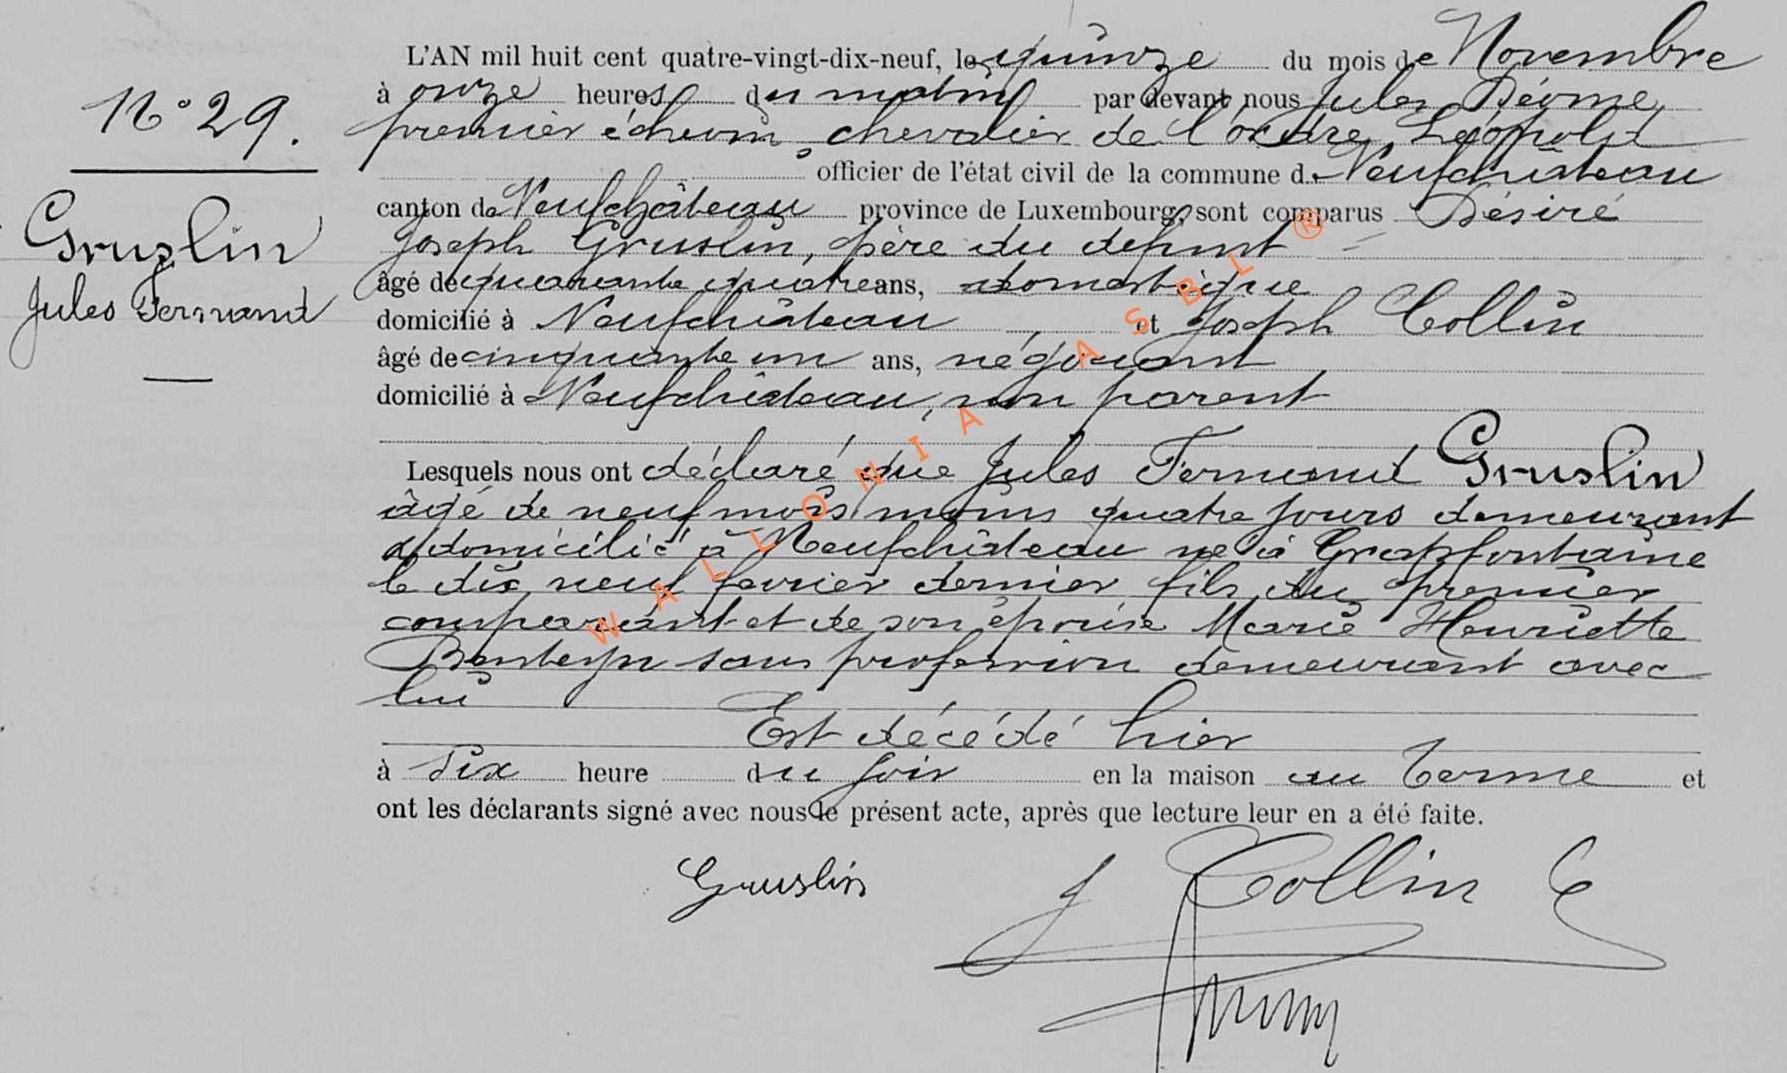 L'AN mil huit cent quatre-vingt-dix-neuf, le quinze du mois de Novembre
N° 29.
à onze heures du matin par devant nous Jules
premier échevin, chevalier de l'ordre Léopold
officier de l'état civil de la commune de Neufchâteau
canton de Neufchâteau province de Luxembourg, sont comparus Désiré
Gruslin
Jules Fernand
Joseph Gruslin, père du défunt
âgé de quarante quatre ans, domestique
domicilié à Neufchâteau et Joseph Collin
âgé de cinquante un ans, négociant
domicilié à Neufchâteau, non parent
Lesquels nous ont déclaré que Jules Fernand Gruslin
âgé de neuf mois moins quatre jours demeurant
& domicilié à Neufchâteau né à Grapfontaine
le dix neuf fevrier dernier fils du premier
comparant et de son épouse Marie Henriette
sans profession demeurant avec
lui
Est décédé hier
à six heure du soir en la maison au Terme et
ont les déclarants signé avec nous le présent acte, après que lecture leur en a été faite.
Gruslin
J Collin
WALLONIA ASBL ®